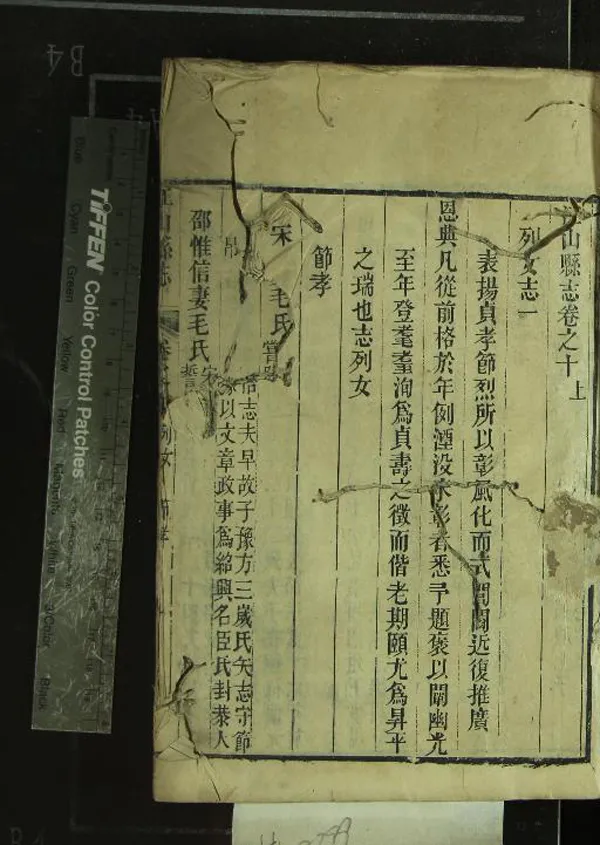 山縣志卷之十上
列女志一
表揚貞孝節烈所以彰風化而式閭閻近復推廣
恩典凡從前格於年例湮没未彰者悉予題褒以闡幽光
至年登耄耋洵爲貞壽之徵而偕老期頤尤爲昇平
之瑞也志列女
節孝
宋
毛氏
志夫早故子豫方三歲氏矢志守節
以文章政事爲紹興名臣氏封恭人
邵惟信妻毛氏
山縣志
列女
節孝
TIFFEN Color Control Patches
Blue
Cyan
Green
Yellow
Red
Magenta
White
3/Color
Black
B4